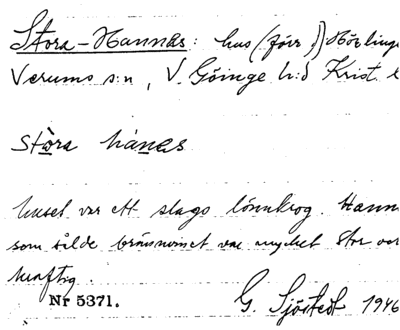 Stora-Hannes: hus (förr,) Hörlinge
Verums s:n, V. Göinge h:d Krist. l
stòra hánes
huset var ett slags lönnkrog. Hann
som sålde brännvinet var mycket stor oc
kraftig.
Nr 5371. G. Sjöstedt 1946